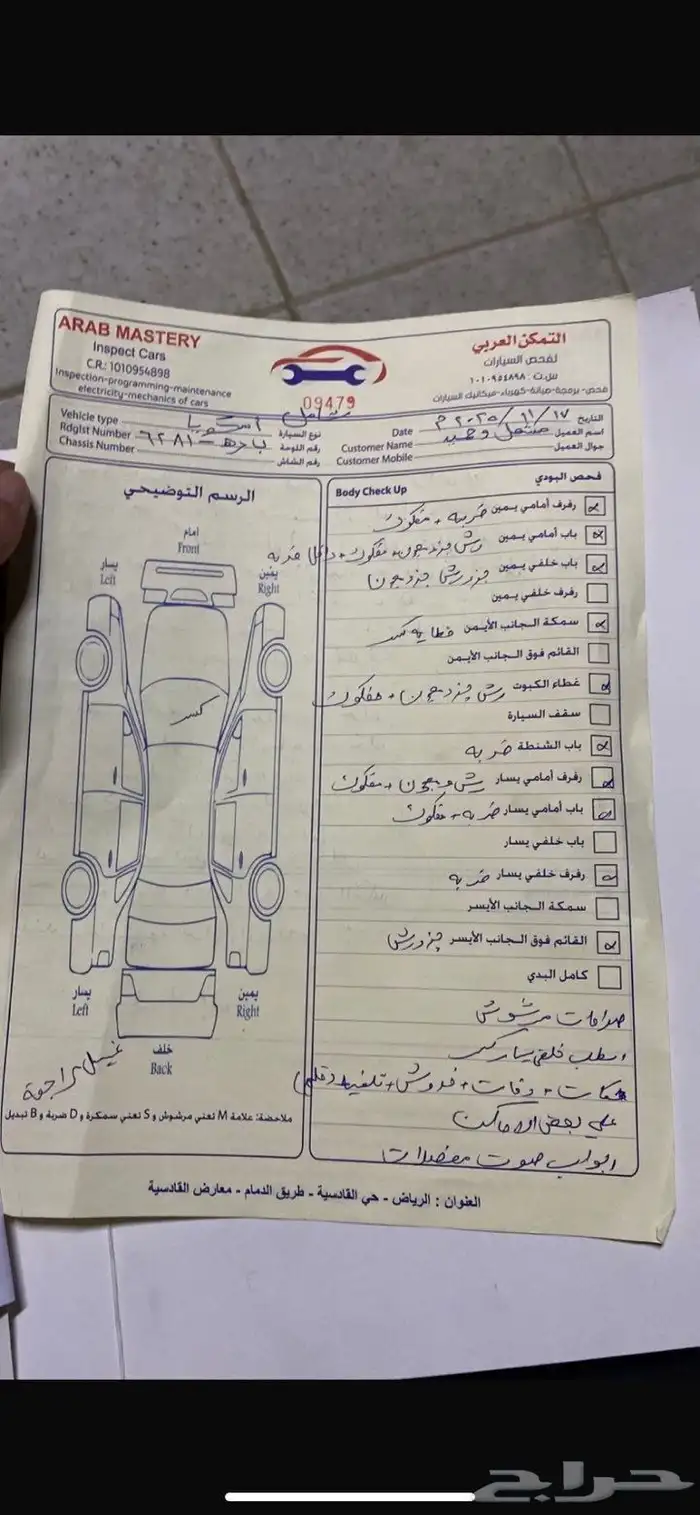 ARAB MASTERY
Inspect Cars
C.R.: 1010954898
Inspection-programming-maintenance
electricity-mechanics of cars
التمكن العربي
لفحص السيارات
س.ت: ١٠١٠٩٥٤٨٩٨
فحص-برمجة-صيانة-كهرباء-ميكانيك السيارات
09479
Vehicle type نوع السيارة
RdgIst Number ٦٢٨١ رقم اللوحة
Chassis Number رقم الشاش
Date ١٧ / ١١ / ٢٠٢٥ م التاريخ
Customer Name اسم العميل
Customer Mobile جوال العميل
الرسم التوضيحي
أمام
Front
يسار
Left
يمين
Right
كسر
يسار
Left
يمين
Right
خلف
Back
غسيل مراجعة
ملاحظة: علامة M تعني مرشوش و S تعني سمكرة و D ضربة و B تبديل
Body Check Up فحص البودي
رفرف أمامي يمين ضربه + مفكوك
باب أمامي يمين رش + معجون + مفكوك + داخل ضربه
باب خلفي يمين جزء رش معجون
رفرف خلفي يمين
سمكة الجانب الأيمن غطايه كسر
القائم فوق الجانب الأيمن
غطاء الكبوت رش + معجون + مفكوك
سقف السيارة
باب الشنطة ضربه
رفرف أمامي يسار رش ومعجون + مفكوك
باب أمامي يسار ضربه + مفكوك
باب خلفي يسار
رفرف خلفي يسار ضربه
سمكة الجانب الأيسر
القائم فوق الجانب الأيسر جزء رش
كامل البدي
صدامات مرشوش
اسطب خلفي يسار كسر
+ دقات + خدوش + تلفيط (قلم)
على بعض الاماكن
ابواب صوت مفصلات
العنوان : الرياض - حي القادسية - طريق الدمام - معارض القادسية
حراج